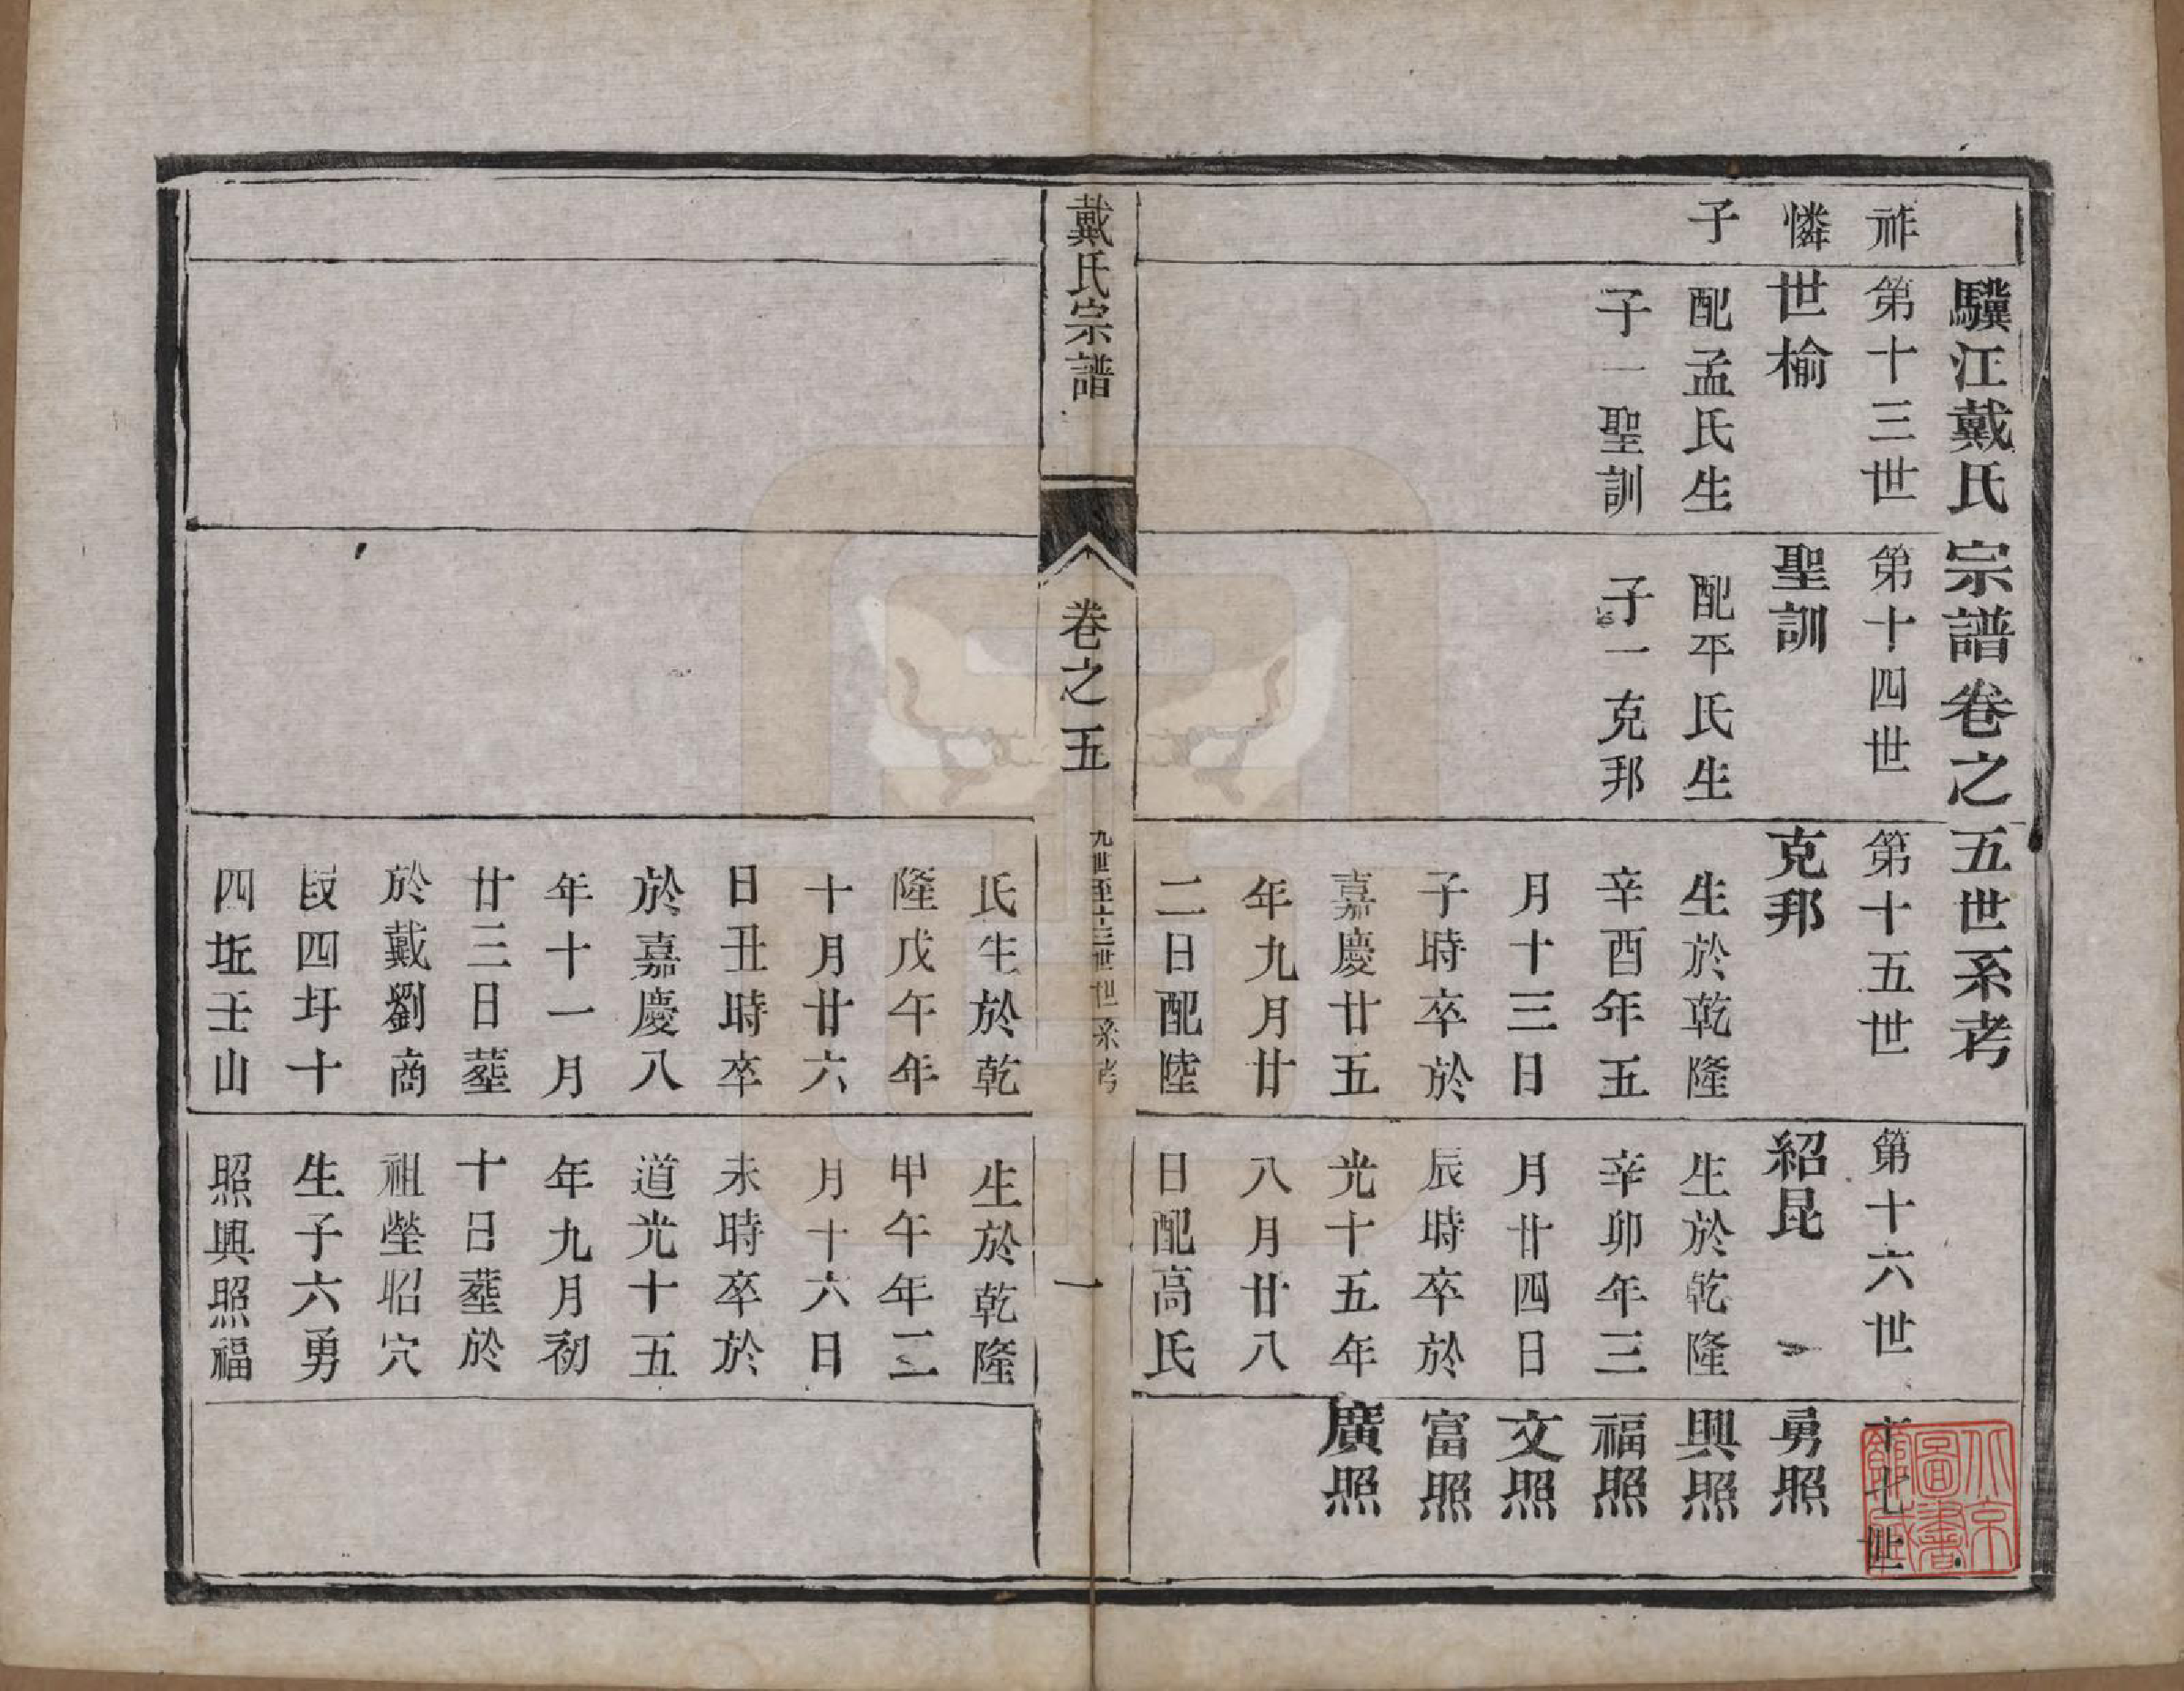 驥江戴氏宗譜卷之五世系考
祚
第十三世
第十四世
第十五世
第十六世
十七世
憐
世榆
聖訓
克邦
紹昆
勇照
子
配孟氏生
子一聖訓
配平氏生
子一克邦
生於乾隆
辛酉年五
月十三日
子時卒於
嘉慶廿五
年九月廿
二日配陸
生於乾隆
辛卯年三
月廿四日
辰時卒於
光十五年
八月廿八
日配高氏
興照
福照
文照
富照
廣照
戴氏宗譜
卷之五
九世至十三世世系考
一
氏生於乾
隆戊午年
十月廿六
日丑時卒
於嘉慶八
年十一月
廿三日塟
於戴劉商
叚四圩十
四坵壬山
生於乾隆
甲午年二
月十六日
未時卒於
道光十五
年九月初
十日塟於
祖塋昭穴
生子六勇
照興照福
北京
圖書
館藏